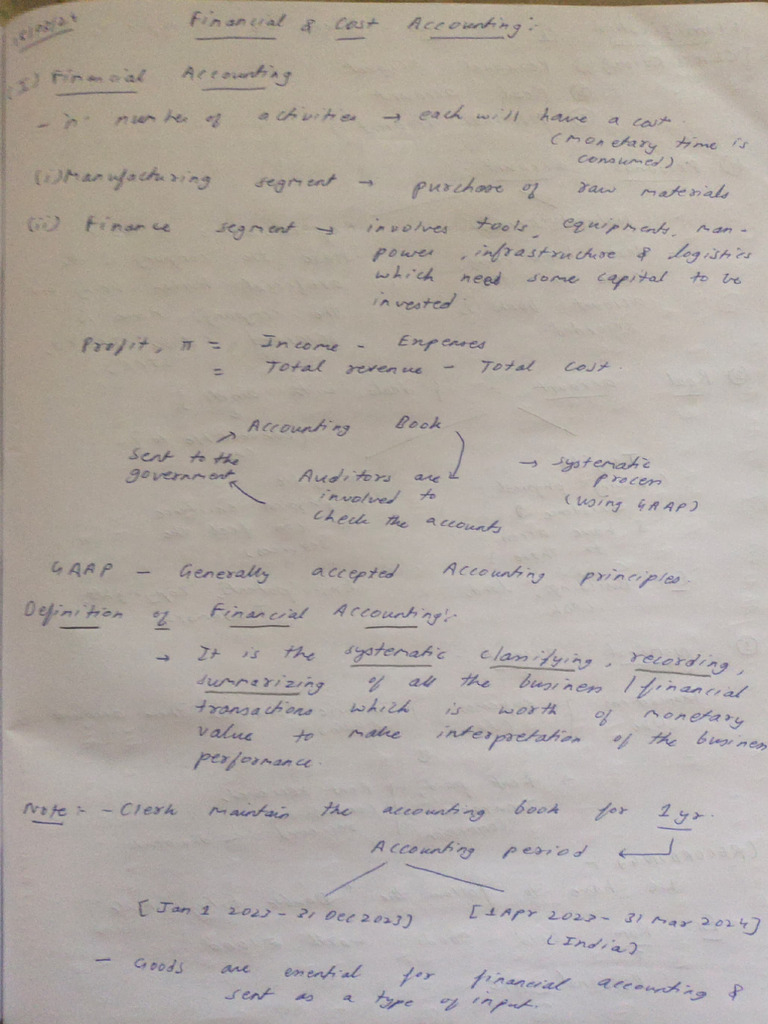 Financial & Cost Accounting:-
(I) Financial Accounting
- 'n' number of activities → each will have a cost.
(monetary time is
consumed)
(i) Manufacturing segment → purchase of raw materials
(ii) Finance segment → involves tools, equipments, man-
power, infrastructure & logistics
which need some capital to be
invested.
Profit, π = Income - Expenses
= Total revenue - Total cost.
Accounting Book
Sent to the
government
Auditors are
involved to
check the accounts
→ systematic
process
(using GAAP)
GAAP - Generally accepted Accounting principles.
Definition of Financial Accounting:-
→ It is the systematic classifying, recording,
summarizing of all the business / financial
transactions which is worth of monetary
value to make interpretation of the business
performance.
Note:- - Clerk maintain the accounting book for 1 yr.
Accounting period
[Jan 1 2023 - 31 Dec 2023] [1 Apr 2023 - 31 Mar 2024]
(India)
- Goods are essential for financial accounting &
sent as a type of input.